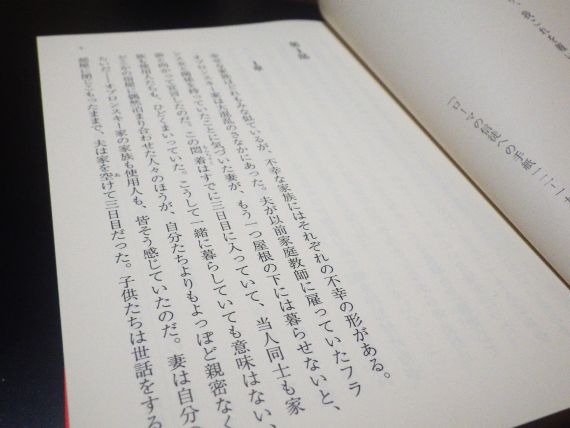 これを報
ローマの信徒への手紙一二・一
第1部
1章
幸せな家族はどれもみな似ているが、不幸な家族にはそれぞれの不幸の形がある。
オブロンスキー家は大混乱のさなかにあった。夫が以前家庭教師に雇っていたフラ
ンス女と関係を持っていたことに気づいた妻が、もう一つ屋根の下には暮らせないと、
夫に向かって宣言したのだ。この悶着はすでに三日目に入っていて、当人同士も家
族も使用人たちも、ひどくまいっていた。こうして一緒に暮らしていても意味はない、
どこかの宿屋に偶然泊まり合わせた人々のほうが、自分たちよりもよっぽど親密なく
らいだ――オブロンスキー家の家族も使用人も、皆そう感じていたのだ。妻は自分の
部屋に閉じこもったままで、夫は家を空けて三日目だった。子供たちは世話をする